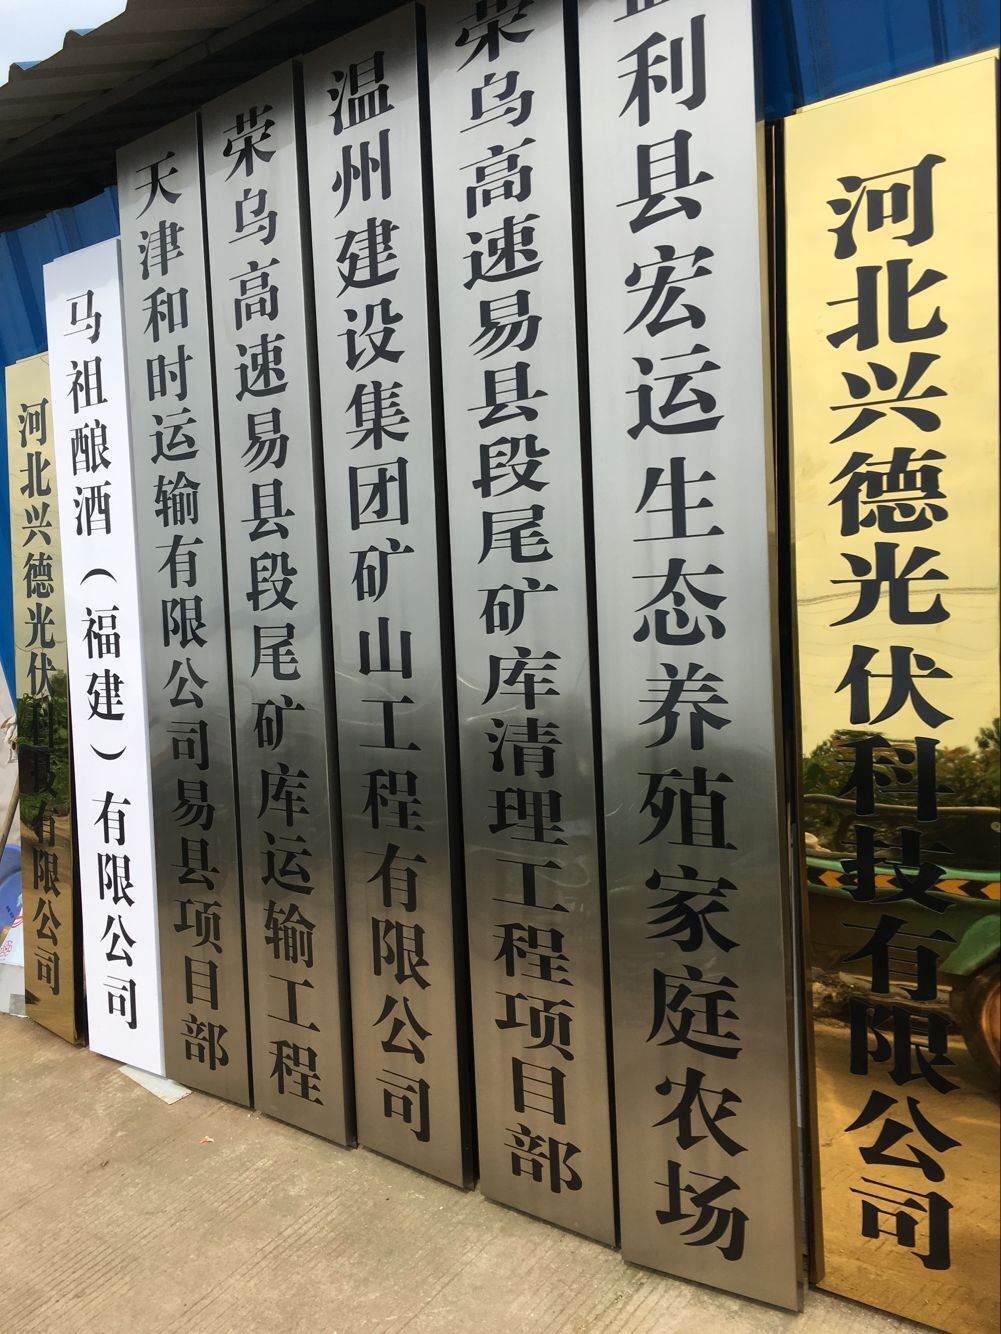 河北兴德光伏科技有限公司
马祖酿酒（福建）有限公司
天津和时运输有限公司易县项目部
荣乌高速易县段尾矿库运输工程
温州建设集团矿山工程有限公司
荣乌高速易县段尾矿库清理工程项目部
利县宏运生态养殖家庭农场
河北兴德光伏科技有限公司